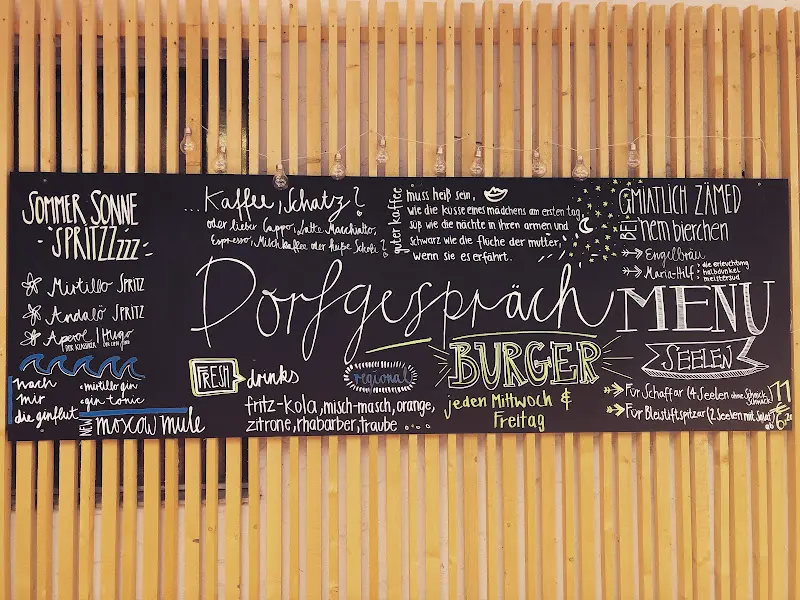 SOMMER SONNE
SPRITZZzzz
Mirtillo SPRITZ
Andalö SPRITZ
Aperol | Hugo
DER KLASSIKER
nach
mir
die ginflut
mirtillo gin
gin tonic
NEW
moscow mule
...Kaffee, Schatz?
oder lieber Cappo, Latte Macchiato,
Espresso, Milchkaffee oder heiße Schoki?
guter kaffee
muss heiß sein,
wie die küsse eines mädchens am ersten tag,
süß wie die nächte in ihren armen und
schwarz wie die flüche der mutter,
wenn sie es erfährt.
Dorfgespräch
FRESH drinks
fritz-kola, misch-masch, orange,
zitrone, rhabarber, traube ...
regional
BURGER
jeden Mittwoch &
Freitag
GMIATLICH ZÄMED
BEI 'nem bierchen
Engelbräu
Maria-Hilf:
die erleuchtung
halbdunkel
meistersud
MENU
SEELEN
Für Schaffar (4 Seelen ohne Schnick Schnack) 11
Für Bleistiftspitzer (2 Seelen mit Salat)
ab 6,20